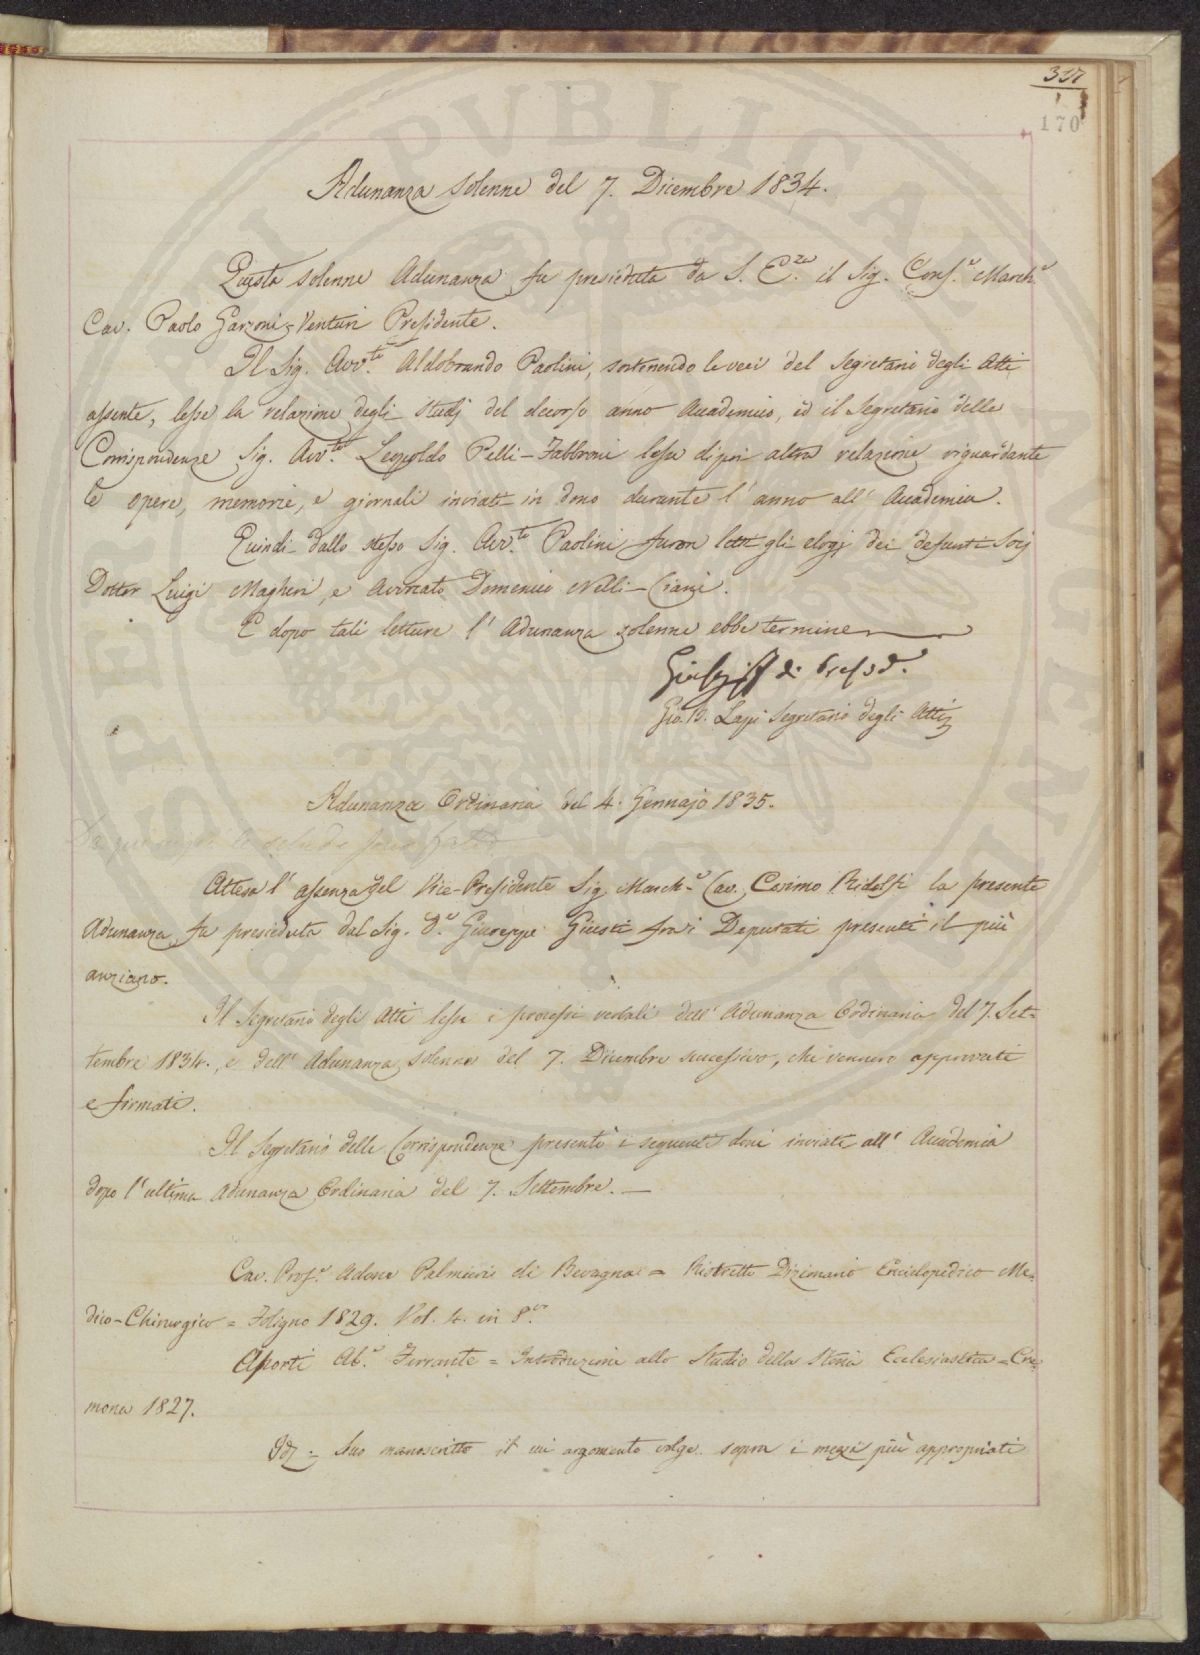 317
170
Adunanza solenne del 7. Dicembre 1834.
Questa solenne Adunanza fu presieduta da S. E.za il Sig. Cons.e March.e
Cav. Paolo Garzoni=Venturi Presidente.
Il Sig. Avv.to Aldobrando Paolini, sostenendo le veci del Segretario degli Atti
assente, lesse la relazione degli studj del decorso anno Accademico, ed il Segretario delle
Corrispondenze Sig. Avv.to Leopoldo Pelli-Fabbroni lesse dipoi altra relazione riguardante
le opere, memorie, e giornali inviati in dono durante l'anno all'Accademia.
Quindi dallo stesso Sig. Avv.to Paolini furon letti gli elogj dei defunti Socj
Dottor Luigi Magheri, e Avvocato Domenico Nelli-Ciani.
E dopo tali letture l'Adunanza solenne ebbe termine
di Presid.
Gio. B. Lapi Segretario degli Atti
Adunanza Ordinaria del 4. Gennajo 1835.
Attesa l'assenza del Vice-Presidente Sig. March.e Cav. Cosimo Ridolfi la presente
Adunanza fu presieduta dal Sig. D.e Giuseppe Giusti fra i Deputati presenti il più
anziano.
Il Segretario degli Atti lesse i processi verbali dell'Adunanza Ordinaria del 7. Set-
tembre 1834., e dell'Adunanza solenne del 7. Dicembre successivo, che vennero approvati
e firmati.
Il Segretario delle Corrispondenze presentò i seguenti doni inviati all'Accademia
dopo l'ultima Adunanza Ordinaria del 7. Settembre. —
Cav. Prof.e Adone Palmieri di Bevagna = Ristretto Dizionario Enciclopedico Me-
dico-Chirurgico = Foligno 1829. Vol. 4. in 8.vo
Aporti Ab.e Ferrante = Introduzione allo Studio della Storia Ecclesiastica = Cre-
mona 1827.
Id. = Suo manoscritto il cui argomento volge sopra i mezzi più appropriati